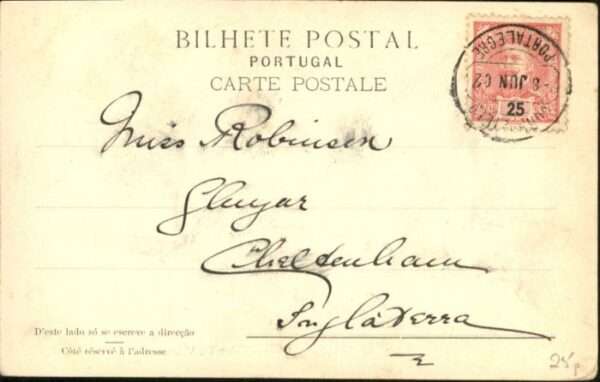 BILHETE POSTAL
PORTUGAL
CARTE POSTALE
PORTALEGRE
8 JUN 02
25
Miss Robinson
Glengar
Cheltenham
Inglaterra
D'este lado só se escreve a direcção
Côté réservé à l'adresse
25 p